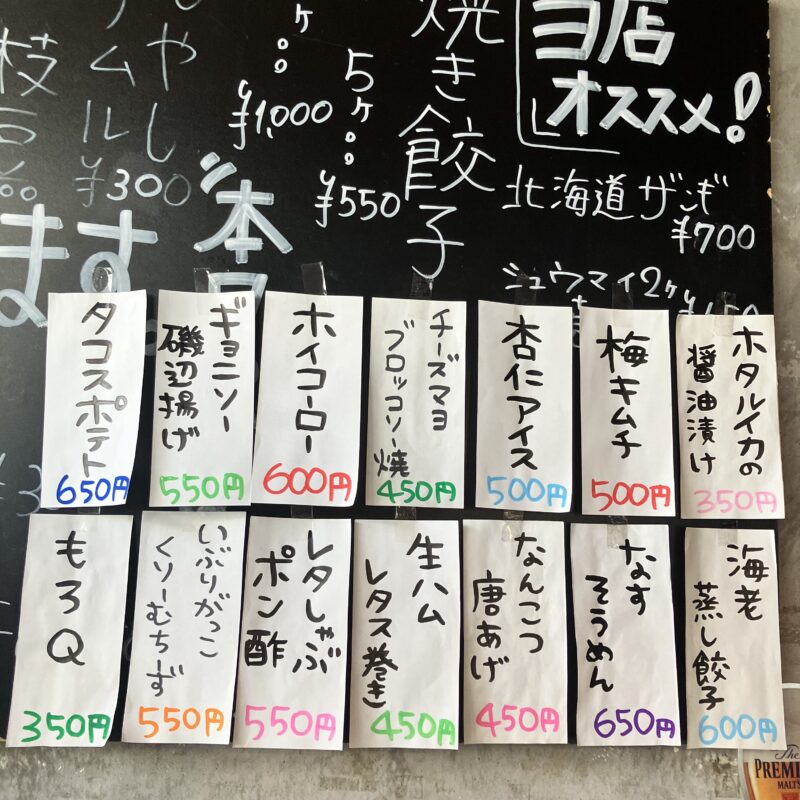 当店
オススメ!
北海道ザンギ
¥700
シュウマイ2ヶ
焼き餃子
5ヶ
¥550
ヶ
¥1,000
もやし
ナムル
¥300
枝豆
ます。
ホタルイカの
醤油漬け
350円
梅キムチ
500円
杏仁アイス
500円
チーズマヨ
ブロッコリー焼
450円
ホイコーロー
600円
ギョニソー
磯辺揚げ
550円
タコスポテト
650円
海老
蒸し餃子
600円
なす
そうめん
650円
なんこつ
唐あげ
450円
生ハム
レタス巻き
450円
レタしゃぶ
ポン酢
550円
いぶりがっこ
くりーむちーず
550円
もろQ
350円
The
PREMI
MALT'